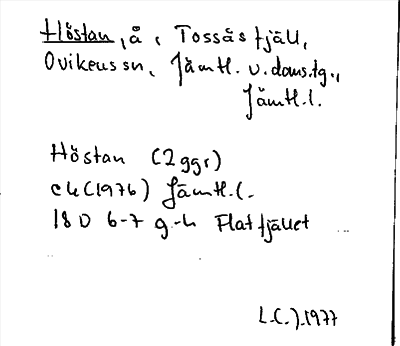 Höstan, å, Tossåsfjäll,
Ovikens sn, Jämtl. v. doms.tg.,
Jämtl.l.
Höstan (2 ggr)
ek (1976) Jämtl.l.
18D 6-7 g-h Flatfjället
L.C.J. 1977